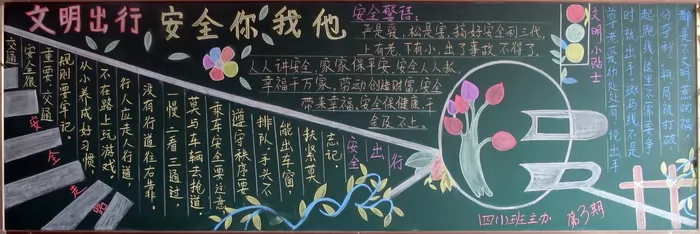 文明出行 安全你我他
安全警语:
严是爱、松是害,搞好安全利三代,
上有老,下有小,出了事故不得了。
人人讲安全,家家保平安,安全人人抓,
幸福千万家。劳动创造财富,安全
带来幸福。安全保健康,千
金及不上。
交通
安全很
重要,交通
规则要牢记
从小养成好习惯,
不在路上玩游戏
行人应走人行道,
没有行道往右靠,
一慢二看三通过,
莫与车辆去抢道,
乘车安全要注意
遵守秩序要
排队,手头不
能出车窗,
扶紧莫
忘记。
安全出行
安全走路
文明小贴士
尊老爱幼处处有,说出手
时就出手。斑马线不是
起跑线,这里不需要争
分夺秒。
四(1)班主办 第3期